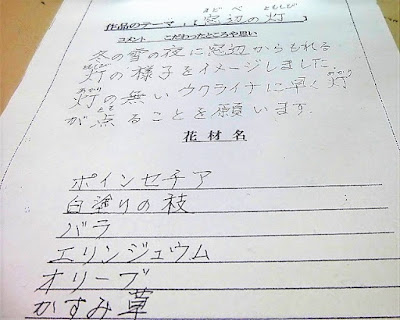 作品のテーマ:【窓辺の灯】
コメント　こだわったところや思い
冬の雪の夜に窓辺からもれる
灯の様子をイメージしました。
灯の無いウクライナに早く灯
が点ることを願います。
花材名
ポインセチア
白塗りの枝
バラ
エリンジュウム
オリーブ
かすみ草